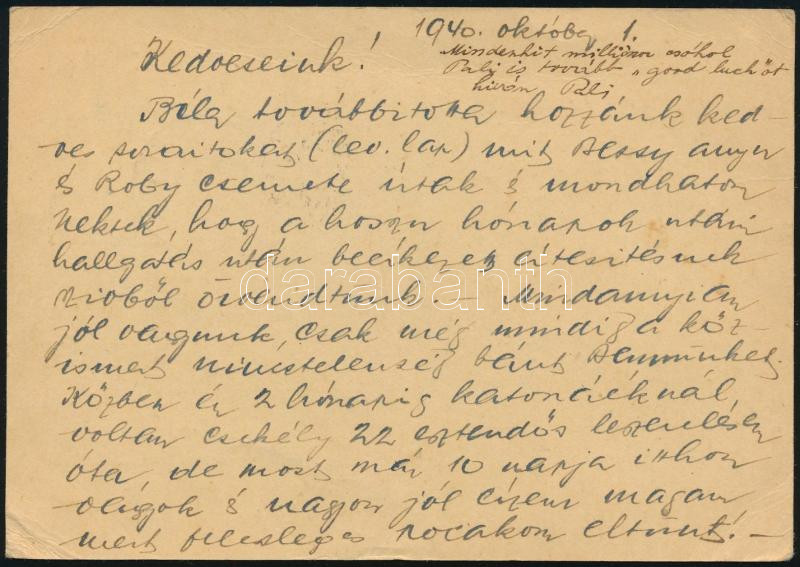 1940. október 1.
Kedveseink!
Mindenkit milliószor csókol
Pali is tovább "good luck"öt
kíván Pali
Béla továbbította hozzánk ked-
ves soraitokat (lev. lap) mit Bessy anyu
és Roby csemete írtak és mondhatom
Nektek, hog a hoszu hónapok utáni
hallgatás után beérkezett értesítésnek
szivből örvendtünk. – Mindannyian
jól vagyunk, csak még mindig a köz-
ismert nincstelenség bánt bennünket.
Közben én 2 hónapig katonáéknál
voltam csekély 22 esztendős leszerelésem
óta, de most már 10 napja itthon
vagyok és nagyon jól érzem magam
mert felesleges pocakom eltünt! –
darabanth.com